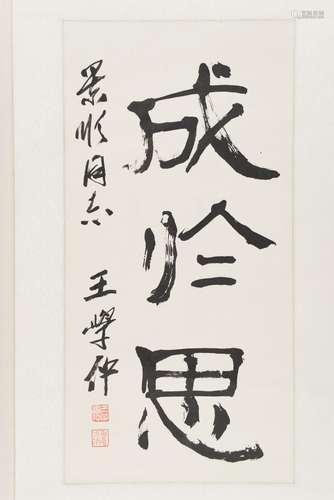 成於思
景顺同志
王學仲